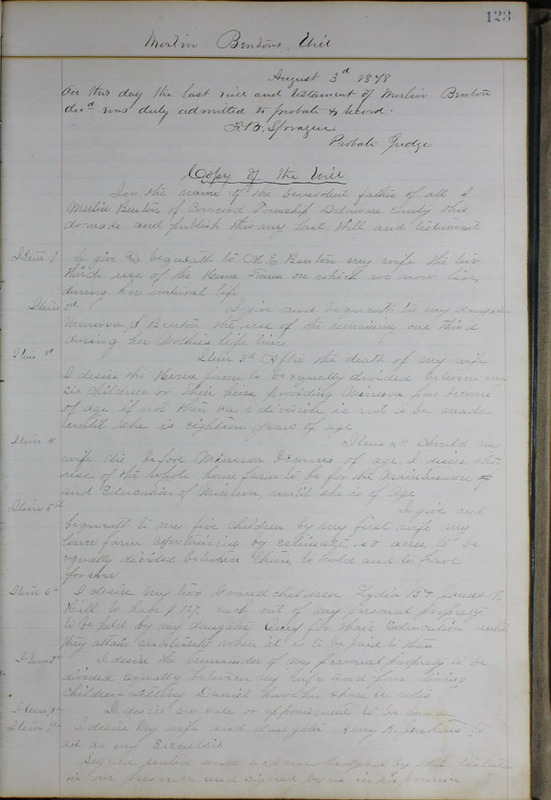 123
Merlin Bentons Will
August 3d 1878
On this day the last will and testament of Merlin Benton
decd was duly admitted to probate & record.
F.B. Sprague
Probate Judge
Copy of the Will
In the name of the benevolent father of all I
Merlin Benton of Concord Township Delaware County Ohio
do make and publish this my last Will and testament
Item 1 I give & bequeath to M.E. Benton my wife the two
thirds use of the Home Farm on which we now live,
during her natural life
Item 2d I give and bequeath to my daughter
Minerva S Benton the use of the remaining one third
during her Mother's life time
Item 3d Item 3d After the death of my wife
I desire the Home farm to be equally divided between my
six children or their heirs, providing Minerva has become
of age if not then said division is not to be made
until she is eighteen years of age
Item 4 Item 4th Should my
wife die before Minerva becomes of age, I desire the
use of the whole home farm to be for the Maintenance
and Education of Minerva, until she is of age
Item 5th I give and
bequeath to my five children by my first wife my
lower farm containing by estimate 50 acres to be
equally divided between them to hold and to have
forever
Item 6th I desire my two grand children Lydia B &
Hill to have $ each out of my personal property
to be held by my daughter for their Education until
they attain when it is to be paid to them
Item 7th I desire the remainder of my personal property to be
divided equally between my wife and living
children letting Daniel have his share in notes
Item 8th I desire no sale or appraisement to be made
Item 9th I desire My wife and daughter to
act as my Executors
Signed sealed and
in our presence and signed by us in his presence